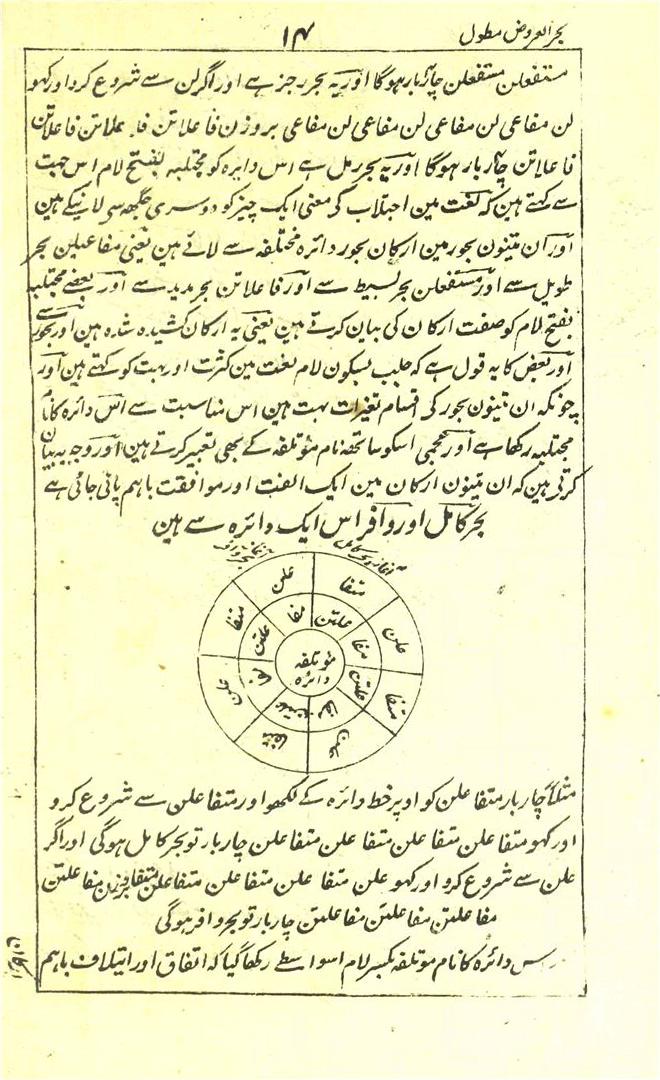 بحر العروض مطول
۱۴
مستفعلن مستفعلن چار بار ہوگا اور یہ بحر رجز ہے اور اگر لن سے شروع کرو اور کہو
لن مفاعی لن مفاعی لن مفاعی لن مفاعی بروزن فاعلاتن فاعلاتن فاعلاتن
فاعلاتن چار بار ہوگا اور یہ بحر رمل ہے اس دایرہ کو مجتلبہ بفتح لام اس جہت
سے کہتے ہین کہ لغت مین اجتلاب کی معنی ایک چیز کو دوسری جگہہ سی لانیکے ہین
اور ان تینون بحور مین ارکان بحور دائرہ مختلفہ سے لائے ہین یعنی مفاعیلین بحر
طویل سے اور مستفعلن بحر بسیط سے اور فاعلاتن بحر مدید سے اور بعضے مجتلبہ
بفتح لام کو صفت ارکان کی بیان کرتے ہین یعنی یہ ارکان کشیدہ شدہ ہین اور بحور سے
اور بعض کا یہ قول ہے کہ جلب بسکون لام لغت مین کثرت اور بہت کو کہتے ہین اور
چونکہ ان تینون بحور کی اقسام تغیرات بہت ہین اس مناسبت سے اس دائرہ کا نام
مجتلبہ رکھا ہے اور عجمی اسکو ساتھہ نام مؤتلفہ کے بھی تعبیر کرتے ہین اور وجہ یہ بیان
کرتی ہین کہ ان تینون ارکان مین ایک الفت اور موافقت باہم پائی جاتی ہے
بحر کامل اور وافر اس ایک دائرہ سے ہین
متفا
علن
متفا
علن
متفا
علن
متفا
علن
مفا
علتن
مفا
علتن
مفا
علتن
مفا
علتن
مؤتلفہ
دائرہ
مثلاً چار بار متفاعلن کو اوپر خط دائرہ کے لکھو اور متفاعلن سے شروع کرو
اور کہو متفاعلن متفاعلن متفاعلن متفاعلن چار بار تو بحر کامل ہوگی اور اگر
علن سے شروع کرو اور کہو علن متفا علن متفا علن متفا علن متفا بروزن مفاعلتن
مفاعلتن مفاعلتن مفاعلتن چار بار تو بحر وافر ہوگی
اس دائرہ کا نام موتلفہ بکسر لام اسواسطے رکھا گیا کہ اتفاق اور ایتلاف باہم